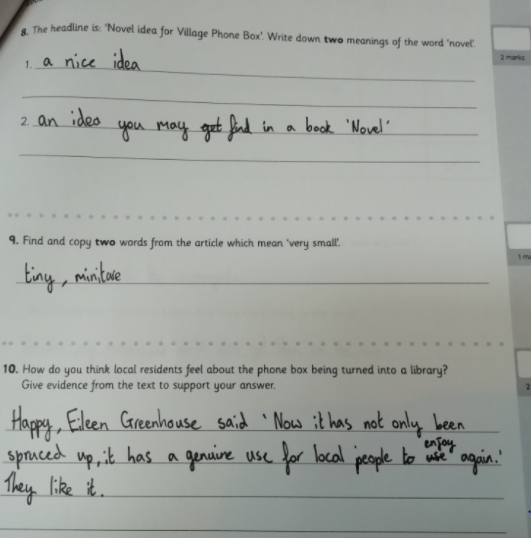 8. The headline is: 'Novel idea for Village Phone Box'. Write down two meanings of the word 'novel'.
2 marks
1. a nice idea
2. an idea you may got find in a book 'Novel'
9. Find and copy two words from the article which mean 'very small'.
1 m
tiny, minitore
10. How do you think local residents feel about the phone box being turned into a library?
Give evidence from the text to support your answer.
2
Happy, Eileen Greenhouse said 'Now it has not only been
enjoy
spruced up, it has a genuine use for local people to use again.'
They like it.